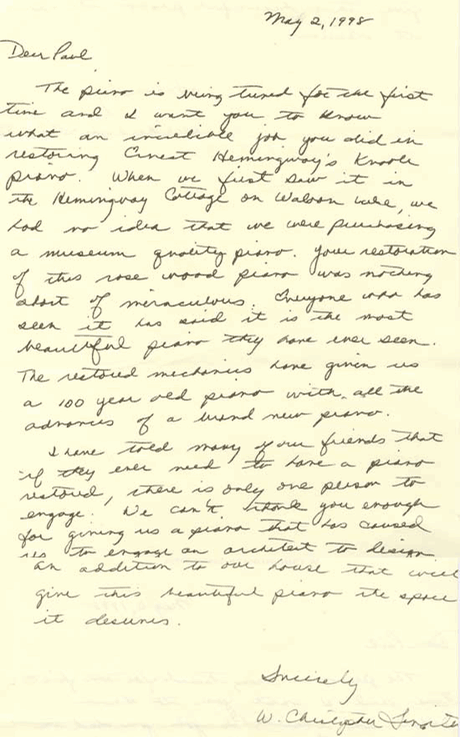 May 2, 1998
Dear Paul
The piano is being tuned for the first
time and I want you to know
what an incredible job you did in
restoring Ernest Hemingway's Knabe
piano. When we first saw it in
the Hemingway Cottage on Walloon Lake, we
had no idea that we were purchasing
a museum quality piano. Your restoration
of this rose wood piano was nothing
short of miraculous. Everyone who has
seen it has said it is the most
beautiful piano they have ever seen.
The restored mechanics have given us
a 100 year old piano with all the
advances of a brand new piano.
I have told many of our friends that
if they ever need to have a piano
restored, there is only one person to
engage. We can't thank you enough
for giving us a piano that has caused
us to engage an architect to design
an addition to our house that will
give this beautiful piano the space
it deserves.
Sincerely
W. Christopher